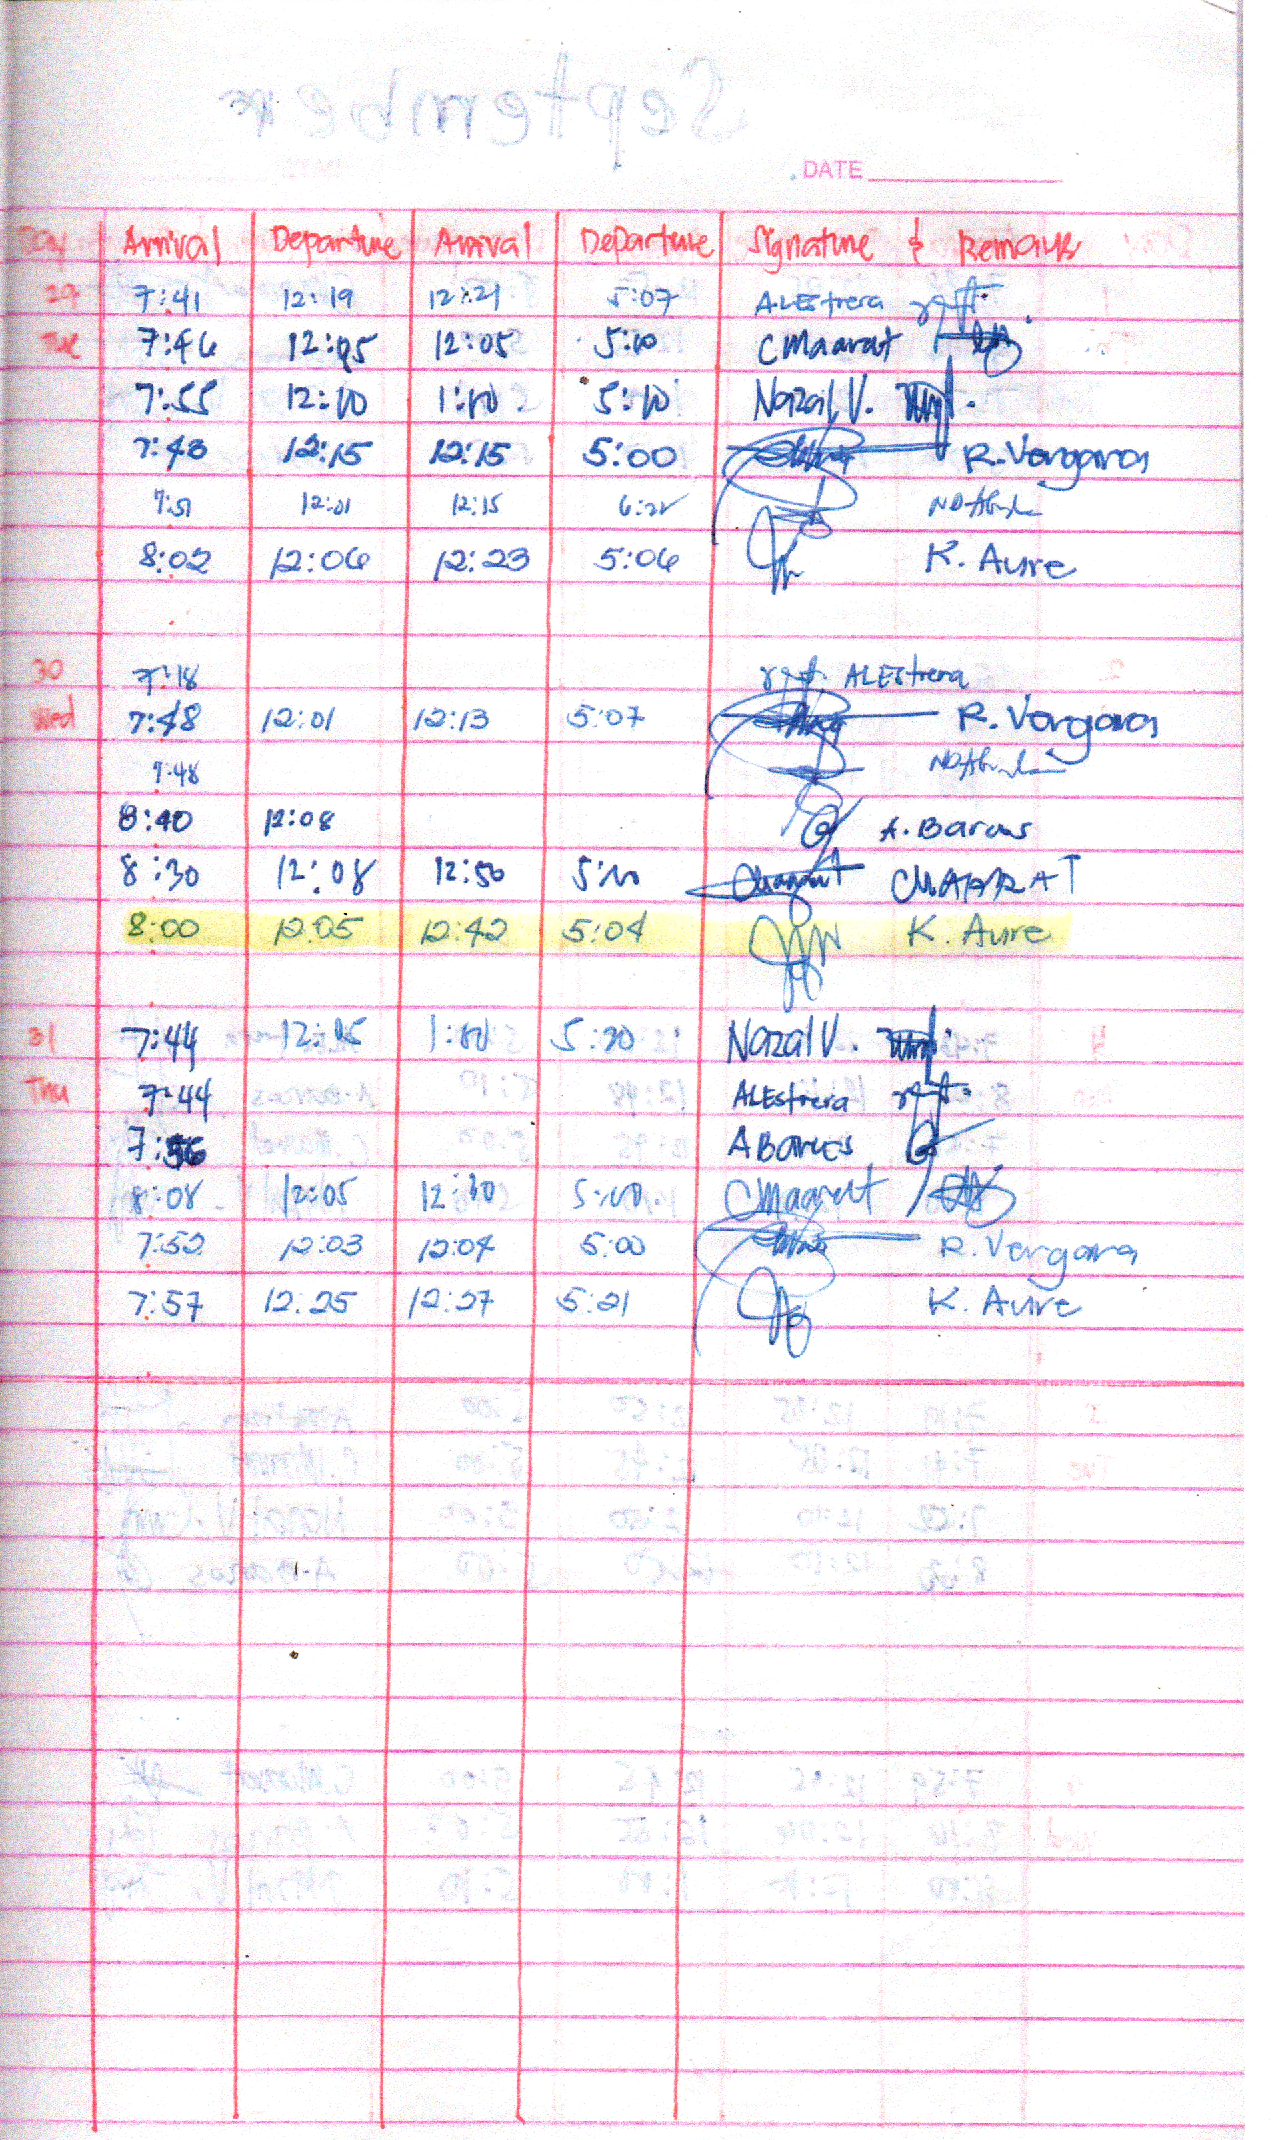 DATE
Day Arrival Departure Arrival Departure Signature & Remarks
29 7:41 12:19 12:21 5:07 ALEstrera
Tue 7:46 12:05 12:05 5:10 CMaarat
7:55 12:10 1:10 5:10 Nazal V.
7:43 12:15 12:15 5:00 R. Vergara
7:51 12:01 12:15 6:22
8:02 12:06 12:23 5:06 K. Aure
30 7:18 ALEstrera
Wed 7:48 12:01 12:13 5:07 R. Vergara
7:48
8:40 12:08 A. Barcus
8:30 12:08 12:50 5:10 CMAARAT
8:00 12:05 12:42 5:04 K. Aure
31 7:44 12:05 1:00 5:20 Nazal V.
Thu 7:44 ALEstrera
7:56 A Barcus
8:08 12:05 12:30 5:00 CMaarat
7:52 12:03 12:04 5:00 R. Vergara
7:57 12:25 12:27 5:21 K. Aure